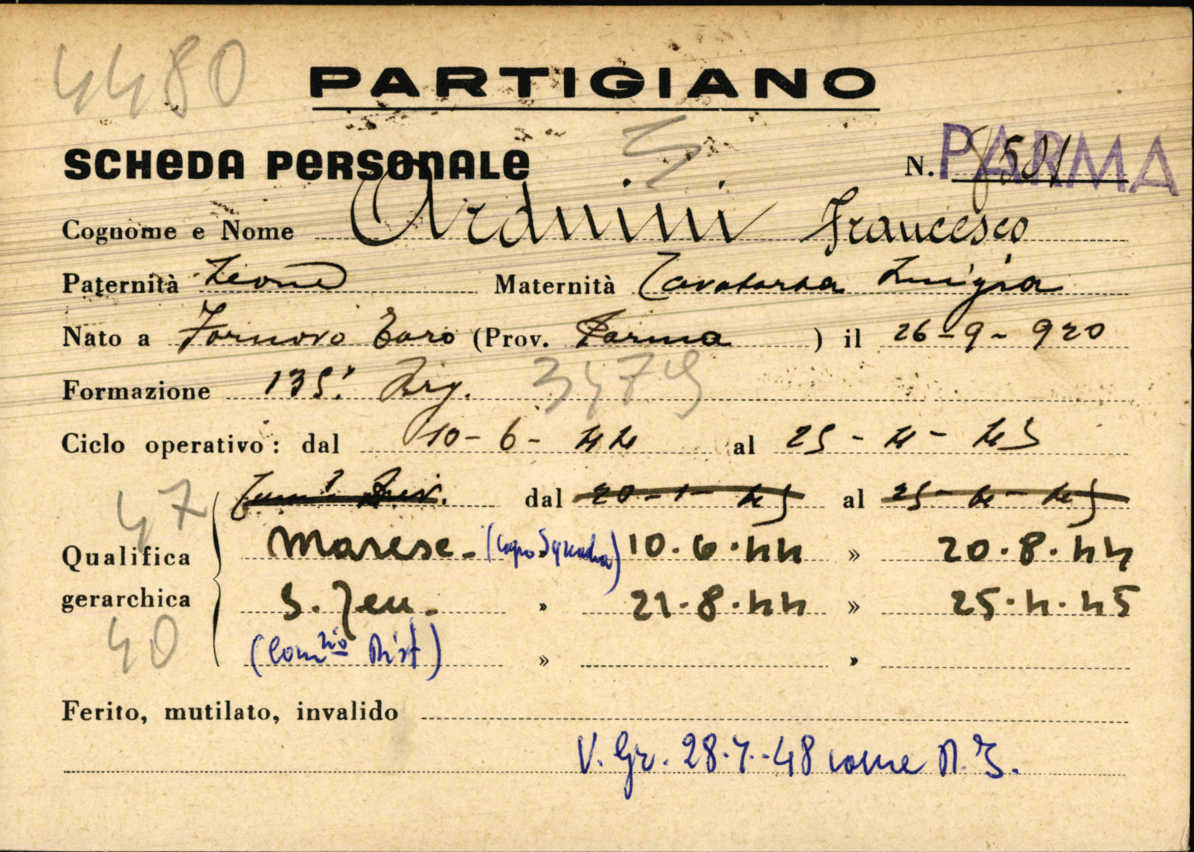 4480
PARTIGIANO
SCHEDA PERSONALE
N. 8501 PARMA
Cognome e Nome Arduini Francesco
Paternità Leone Maternità Luigia
Nato a Fornovo Taro (Prov. Parma ) il 26-9-920
Formazione 135ª Brg. 3479
Ciclo operativo: dal 10-6-44 al 25-4-45
47
dal 20-1-45 al 25-4-45
Qualifica gerarchica
Maresc. (Capo Squadra) 10.6.44 » 20.8.44
S. Ten. » 21.8.44 » 25.4.45
40
(Com.rio Dist) » »
Ferito, mutilato, invalido
V. Gr. 28-7-48 come